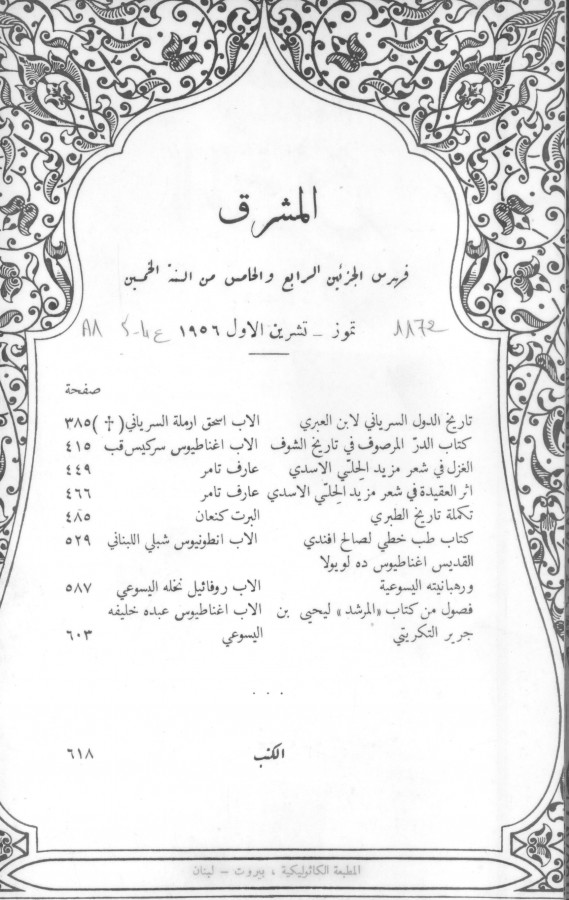 المشرق
فهرس الجزئين الرابع والخامس من السنة الخمسين
تموز - تشرين الاول ١٩٥٦
صفحة
تاريخ الدول السرياني لابن العبري الاب اسحق ارملة السرياني (†) ٣٨٥
كتاب الدرّ المرصوف في تاريخ الشوف الاب اغناطيوس سركيس قب ٤١٥
الغزل في شعر مزيد الحِلّي الاسدي عارف تامر ٤٤٩
اثر العقيدة في شعر مزيد الحِلّي الاسدي عارف تامر ٤٦٦
تكملة تاريخ الطبري البرت كنعان ٤٨٥
كتاب طب خطي لصالح افندي الاب انطونيوس شبلي اللبناني ٥٢٩
القديس اغناطيوس ده لويولا
ورهبانيته اليسوعية الاب روفائيل نخله اليسوعي ٥٨٧
فصول من كتاب «المرشد» ليحيى بن الاب اغناطيوس عبده خليفه
جرير التكريتي اليسوعي ٦٠٣
...
الكتب ٦١٨
المطبعة الكاثوليكية ، بيروت - لبنان